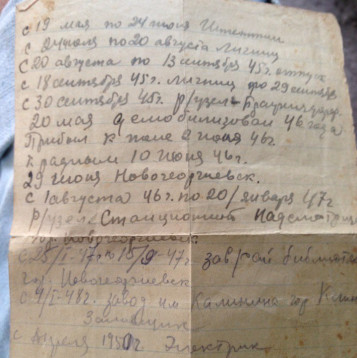 с 19 мая по 24 июня Штеттин
с 24 июля по 20 августа Лигниц
с 20 августа по 13 сентября 45г. отпуск
с 18 сентября 45г. Лигниц до 29 сентября
с 30 сентября 45г. р/узел
20 мая демобилизован 46 года
Прибыл к жене 2 июня 46г.
к родным 10 июня 46г.
29 июня Новогеоргиевск.
с 1 августа 46г. по 20/января 47г
Р/узел Станционной Надсмотрщик
гор. Новогеоргиевск
с 25/I-47г по 15/9-47г. зав. рай библиот
гор. Новогеоргиевск
с 9/I-48г. завод им Калинина гор
с апреля 1950г. Электрик